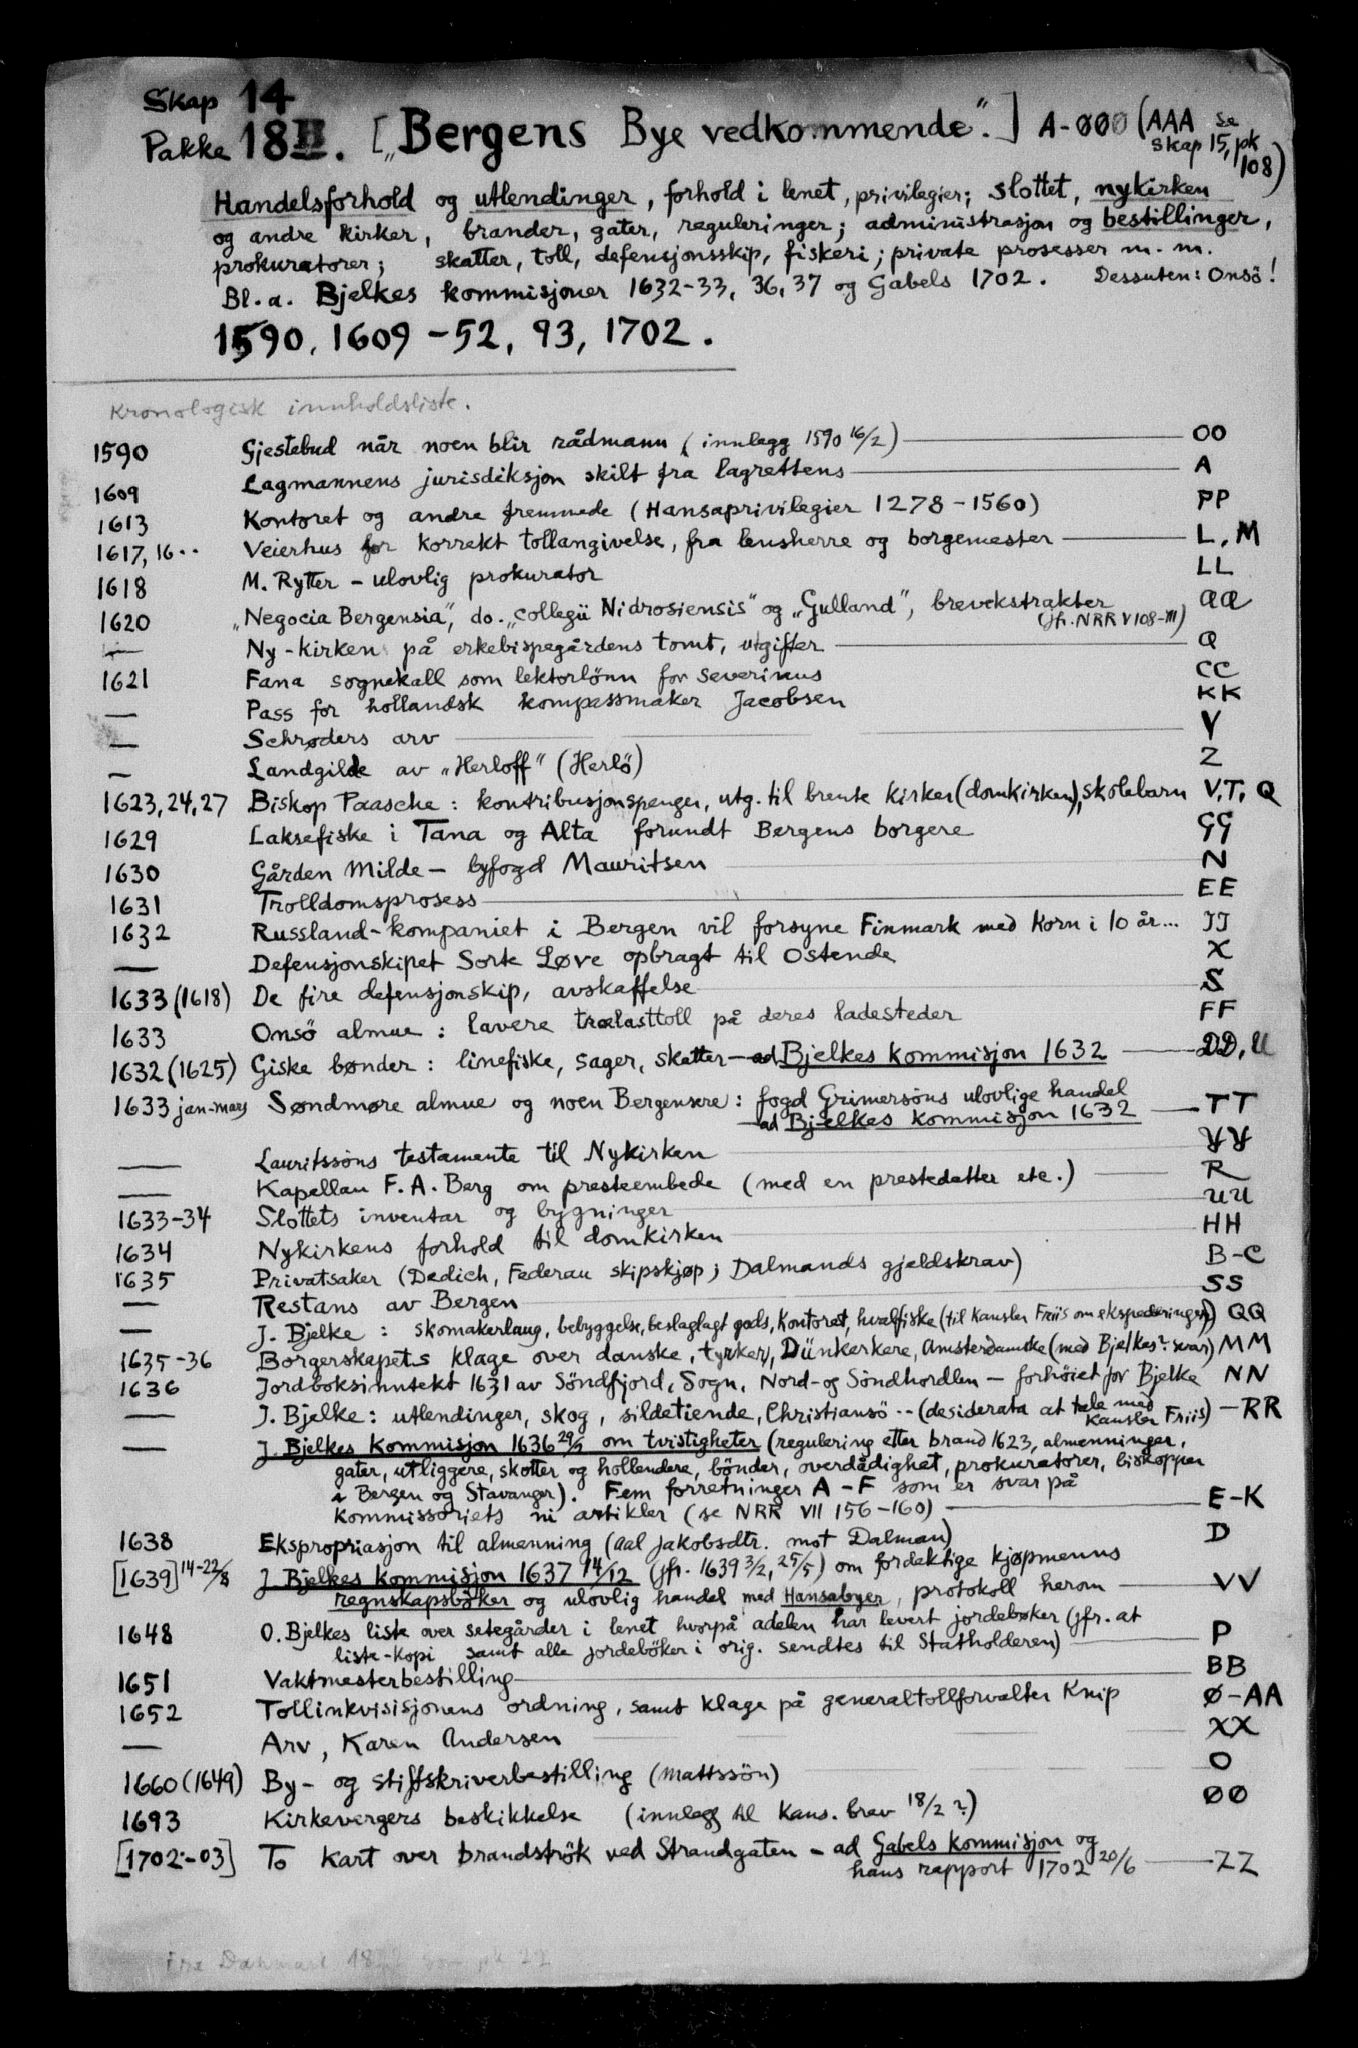 Skap 14
Pakke 18 II. [„Bergens Bye vedkommende".] A-ØØØ (AAA se
skap 15, pk
108)
Handelsforhold og utlendinger, forhold i lenet, privilegier; slottet, nykirken
og andre kirker, brander, gater, reguleringer; administrasjon og bestillinger,
prokuratorer; skatter, toll, defensjonsskip, fiskeri; private prosesser m. m.
Bl. a. Bjelkes kommisjoner 1632-33, 36, 37 og Gabels 1702. Dessuten: Onsö!
1590, 1609 - 52, 93, 1702.
Kronologisk innholdsliste.
1590 Gjestebud når noen blir rådmann (innlegg 1590 16/2) OO
1609 Lagmannens jurisdiksjon skilt fra lagrettens A
1613 Kontoret og andre fremmede (Hansaprivilegier 1278-1560) PP
1617, 16.. Veierhus for korrekt tollangivelse, fra lensherre og borgemester L, M
1618 M. Rytter - ulovlig prokurator LL
1620 „Negocia Bergensia", do. „collegii Nidrosiensis" og „Gulland", brevekstrakter aa
(jfr. NRR V 108-111)
— Ny-kirken på erkebispegårdens tomt, utgifter Q
1621 Fana sognekall som lektorlönn for Severinus CC
— Pass for hollandsk kompassmaker Jacobsen KK
— Schrøders arv Y
— Landgilde av „Herloff" (Herlö) Z
1623, 24, 27 Biskop Paasche: kontribusjonspenger, utg. til brente kirker (domkirken), skolebarn V, T, Q
1629 Laksefiske i Tana og Alta forundt Bergens borgere GG
1630 Gården Milde - byfogd Mauritsen N
1631 Trolldomsprosess EE
1632 Russland-kompaniet i Bergen vil forsyne Finmark med korn i 10 år... JJ
— Defensjonskipet Sorte Løve opbragt til Ostende X
1633 (1618) De fire defensjonskip, avskaffelse S
1633 Onsö almue: lavere trælasttoll på deres ladesteder FF
1632 (1625) Giske bønder: linefiske, sager, skatter - ad Bjelkes kommisjon 1632 DD, U
1633 jan-mars Søndmøre almue og noen Bergensere: fogd Grimersöns ulovlige handel
- ad Bjelkes kommisjon 1632 TT
— Lauritssöns testamente til Nykirken YY
— Kapellan F. A. Berg om presteembede (med en prestedatter etc.) R
1633-34 Slottets inventar og bygninger UU
1634 Nykirkens forhold til domkirken HH
1635 Privatsaker (Dedich, Federau skipskjøp; Dalmands gjeldskrav) B-C
— Restans av Bergen SS
— J. Bjelke: skomakerlaug, bebyggelse, beslaglagt gods, kontoret, hvalfiske (til kansler Friis om ekspederinger) QQ
1635-36 Borgerskapets klage over danske, tyrker, Dünkerkere, Amsterdamske (med Bjelkes? svar) MM
1636 Jordboksinntekt 1631 av Söndfjord, Sogn, Nord- og Söndhordlen - forhöiet for Bjelke NN
— J. Bjelke: utlendinger, skog, sildetiende, Christiansö .. (desiderata at tale med
kansler Friis) - RR
— J. Bjelkes kommisjon 1636 29/5 om tvistigheter (regulering etter brand 1623, almenninger,
gater, utliggere, skotter og hollendere, bönder, overdådighet, prokuratorer, biskopper
i Bergen og Stavanger). Fem forretninger A - F som er svar på
kommissoriets ni artikler (se NRR VII 156-160) E-K
1638 Ekspropriasjon til almenning (Aal Jakobsdtr. mot Dalman) D
[1639] 14-22/8 J. Bjelkes kommisjon 1637 14/12 (jfr. 1639 3/2, 25/5) om fordektige kjøpmenns
regnskapsböker og ulovlig handel med Hansabyer, protokoll herom VV
1648 O. Bjelkes liste over setegårder i lenet hvorpå adelen har levert jordebøker (jfr. at
liste-kopi samt alle jordeböker i orig. sendtes til Statholderen) P
1651 Vaktmesterbestilling BB
1652 Tollinkvisisjonens ordning, samt klage på generaltollforvalter Knip Ø-AA
— Arv, Karen Andersen XX
1660 (1649) By- og stiftskriverbestilling (Mattssön) O
1693 Kirkevergers beskikkelse (innlegg til kans. brev 18/2 ?) ØØ
[1702-03] To kart over brandströk ved Strandgaten - ad Gabels kommisjon og
hans rapport 1702 20/6 ZZ
Fra Danmark